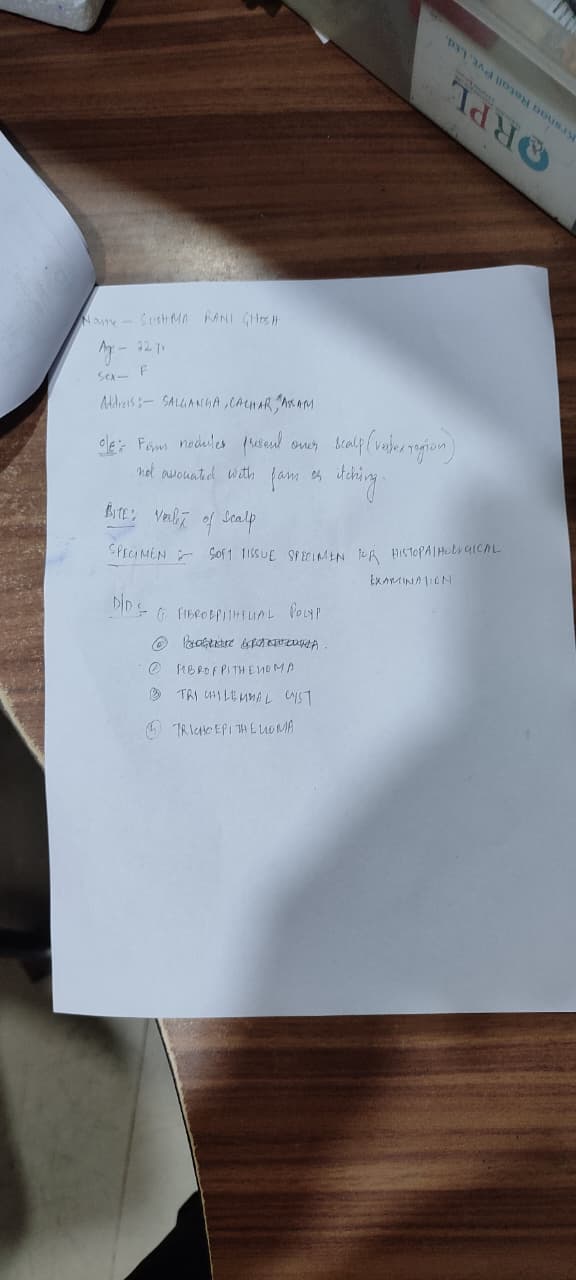 Kranaa Retail Pvt. Ltd.
RPL
Name - SUSHMA RANI GHOSH
Age - 22 Yr
Sex - F
Address :- SALGANGA, CACHAR, ASSAM
O/E :- Firm nodules present over scalp (vertex region)
not associated with pain or itching.
SITE : Vertex of Scalp
SPECIMEN :- SOFT TISSUE SPECIMEN FOR HISTOPATHOLOGICAL
EXAMINATION
D/D :- ① FIBROEPITHELIAL POLYP
②
② FIBROEPITHELIOMA
③ TRICHILEMMAL CYST
④ TRICHOEPITHELIOMA